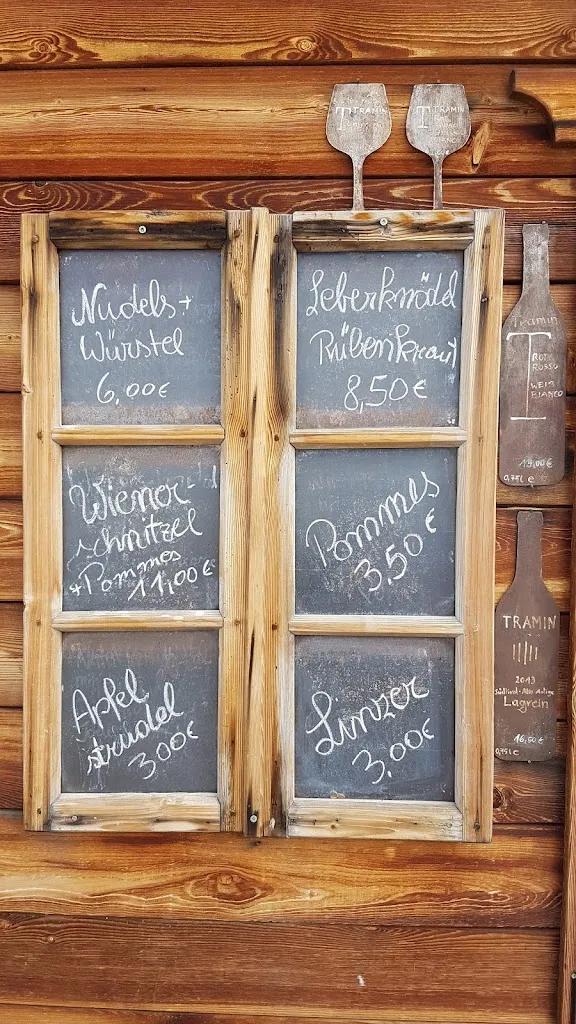 Nudels+
Würstel
6,00€
Leberknödl
Rübenkraut
8,50€
Wiener-
schnitzel
+Pommes
11,00€
Pommes
3,50€
Apfel
strudel
300€
Linzer
3,00€
T TRAMIN
T TRAMIN
Tramin
T
ROTE
ROSSO
WEIß
BIANCO
19,00€
0,75l €
TRAMIN
2013
Südtirol-Alto Adige
Lagrein
16,50€
0,75l €